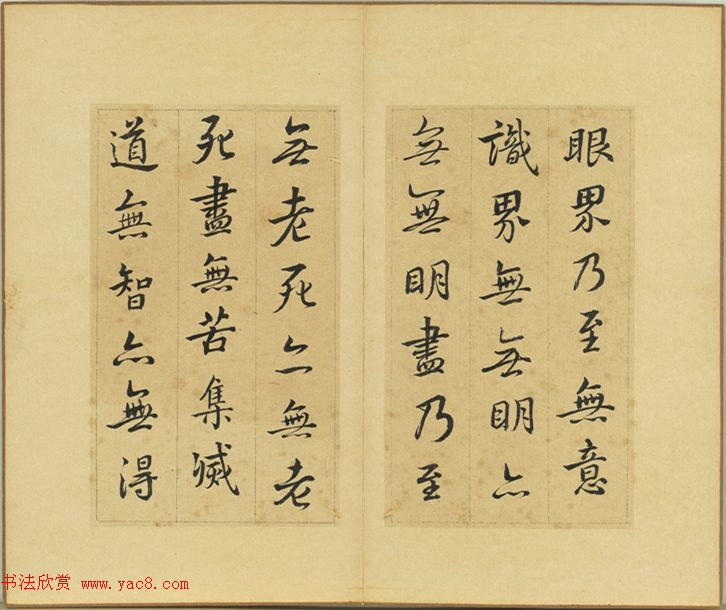 眼界乃至無意
識界無無明亦
無無明盡乃至
無老死亦無老
死盡無苦集滅
道無智亦無得
书法欣赏 www.yac8.com